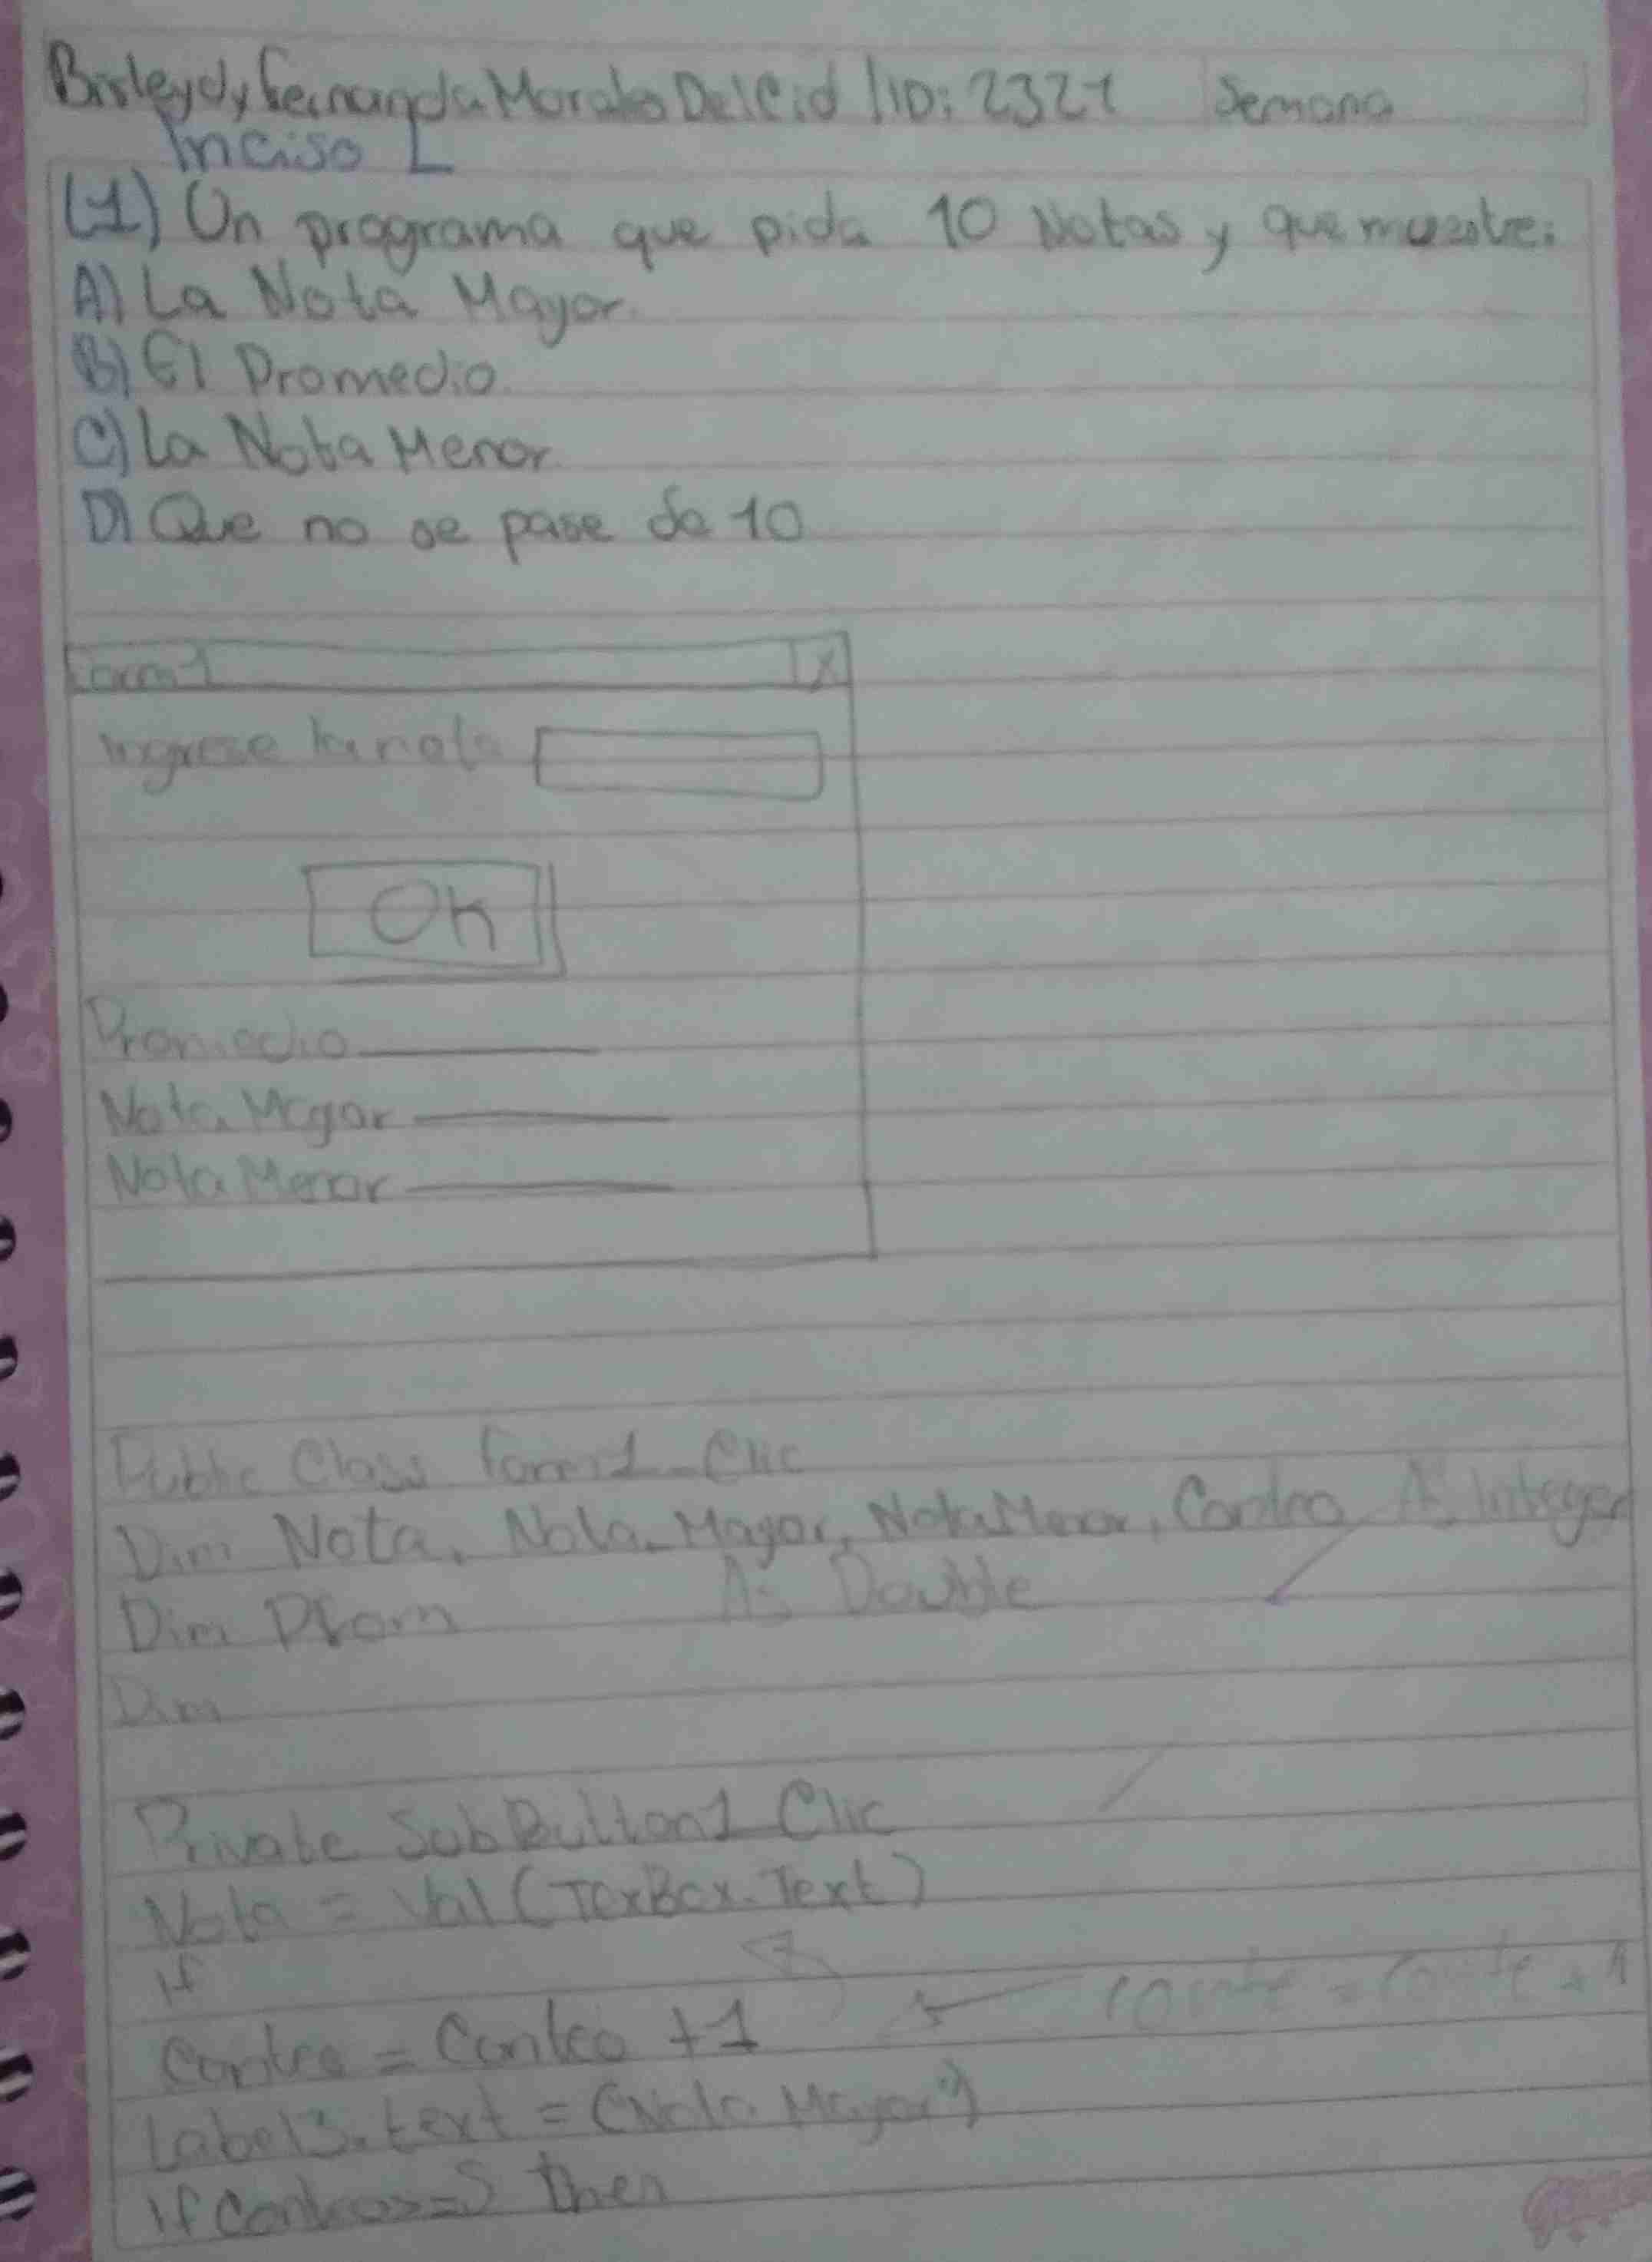 Bisleydy Fernanda Morales Del Cid | ID: 2321 Semana
Inciso L
(1) Un programa que pida 10 Notas y que muestre:
A) La Nota Mayor.
B) El Promedio
C) La Nota Menor
D) Que no se pase de 10
Form1 X
Ingrese la nota
Ok
Promedio
Nota Mayor
Nota Menor
Public Class Form1_Clic
Dim Nota, Nota_Mayor, Nota Menor, Conteo As Integer
Dim Prom As Double
Dim
Private Sub Button1_Clic
Nota = Val (TexBox.Text)
If
Conteo = Conteo + 1
Label3.text = (Nota Mayor)
If Conteo >= 5 then